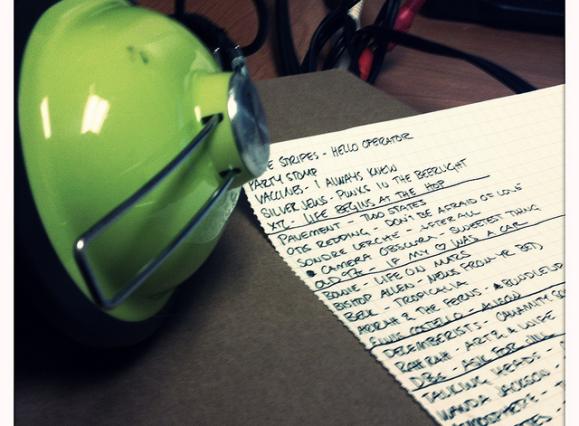 E STRIPES - HELLO OPERATOR
PARTY STOMP
VACCINES - I ALWAYS KNEW
SILVER JEWS - PUNKS IN THE BEERLIGHT
XTC - LIFE BEGINS AT THE HOP
PAVEMENT - TWO STATES
OTIS REDDING - DON'T BE AFRAID OF LOVE
SONDRE LERCHE - AFTER ALL
CAMERA OBSCURA - SWEETEST THING
OLD 97'S - IF MY ♡ WAS A CAR
BOWIE - LIFE ON MARS
BISHOP ALLEN - NEWS FROM YR BED
BECK - TROPICALIA
& THE FERNS - A BUNDLED UP
ELVIS COSTELLO - ALISON
DECEMBERISTS - CALAMITY SO
RAH RAH - ART & A WIFE
ASK FOR
TALKING HEADS -
WANDA JACKSON -
ATMOSPHERE -